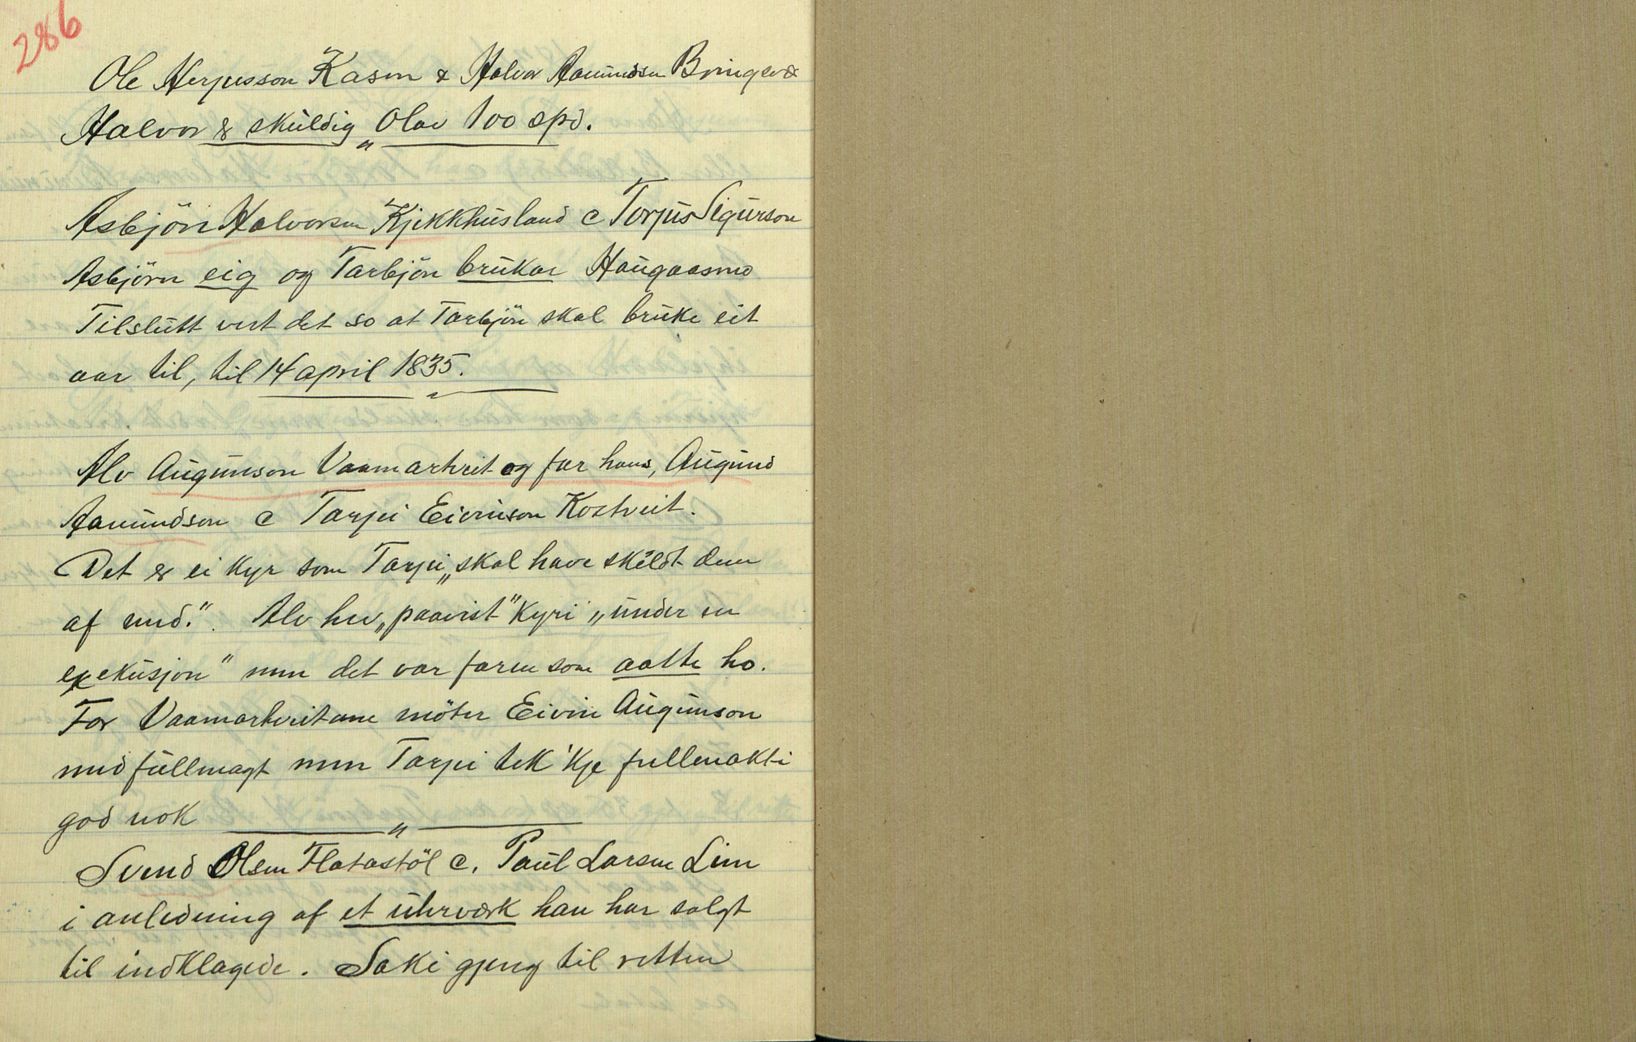 286
Ole Herjusson Kasin & Halvor Aamundsen Bringeland
Halvor er skuldig Olav 100 spd.
Asbjörn Halvorsen Kjekkhusland c Torjus Sigurson
Asbjörn eig og Tarbjön brukar Haugaasmo
Tilslutt vert det so at Tarbjön skal bruke eit
aar til, til 14 april 1835.
Alv Augunson Vaamartveit og far hans, Augund
Aamundson c Tarjei Eivinson Kostveit.
Det er ei kyr som Tarjei „skal have skildt dem
af med." Alv hev „paavist" kyri „under en
exekusjon" men det var faren som aatte ho.
For Vaamartveitane möter Eivin Augunson
med fullmagt men Tarjei tek 'kje fullmakti
god nok
Svend Olsen Flatastöl c. Paul Larsen Lien
i anledning af et uhrværk han har solgt
til indklagede. Saki gjeng til retten